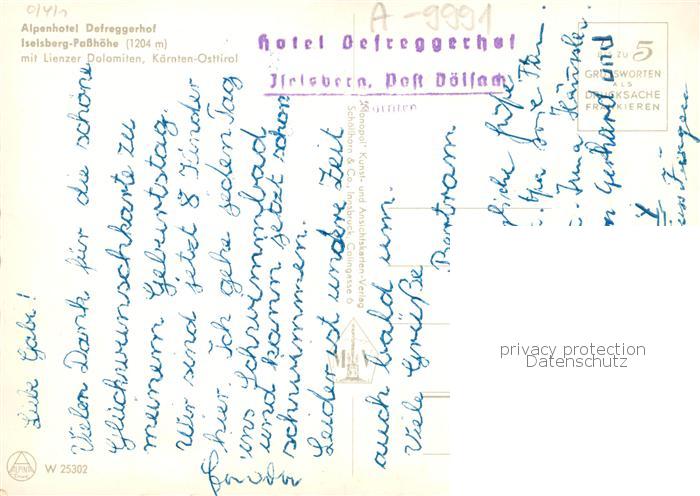 0/4/1
A-9991
Alpenhotel Defreggerhof
Iselsberg-Paßhöhe (1204 m)
mit Lienzer Dolomiten, Kärnten-Osttirol
Hotel Defreggerhof
Iselsberg, Post Dölsach
Kärnten
BIS ZU 5
GRUSSWORTEN
ALS
DRUCKSACHE
FRANKIEREN
Liebe Gabi!
Vielen Dank für die schöne
Glückwunschkarte zu
meinem Geburtstag.
Wir sind jetzt 8 Kinder
hier. Ich gehe jeden Tag
ins Schwimmbad
und kann jetzt schon
schwimmen.
Leider ist unsere Zeit
auch bald um.
Viele Grüße
Bertram
Grüße
Irma
Gerhard und
Jürgen
"Monopol" Kunst- und Ansichtskarten-Verlag
Schöllhorn & Co., Innsbruck, Colingasse 6
privacy protection
Datenschutz
ALPINA
W 25302